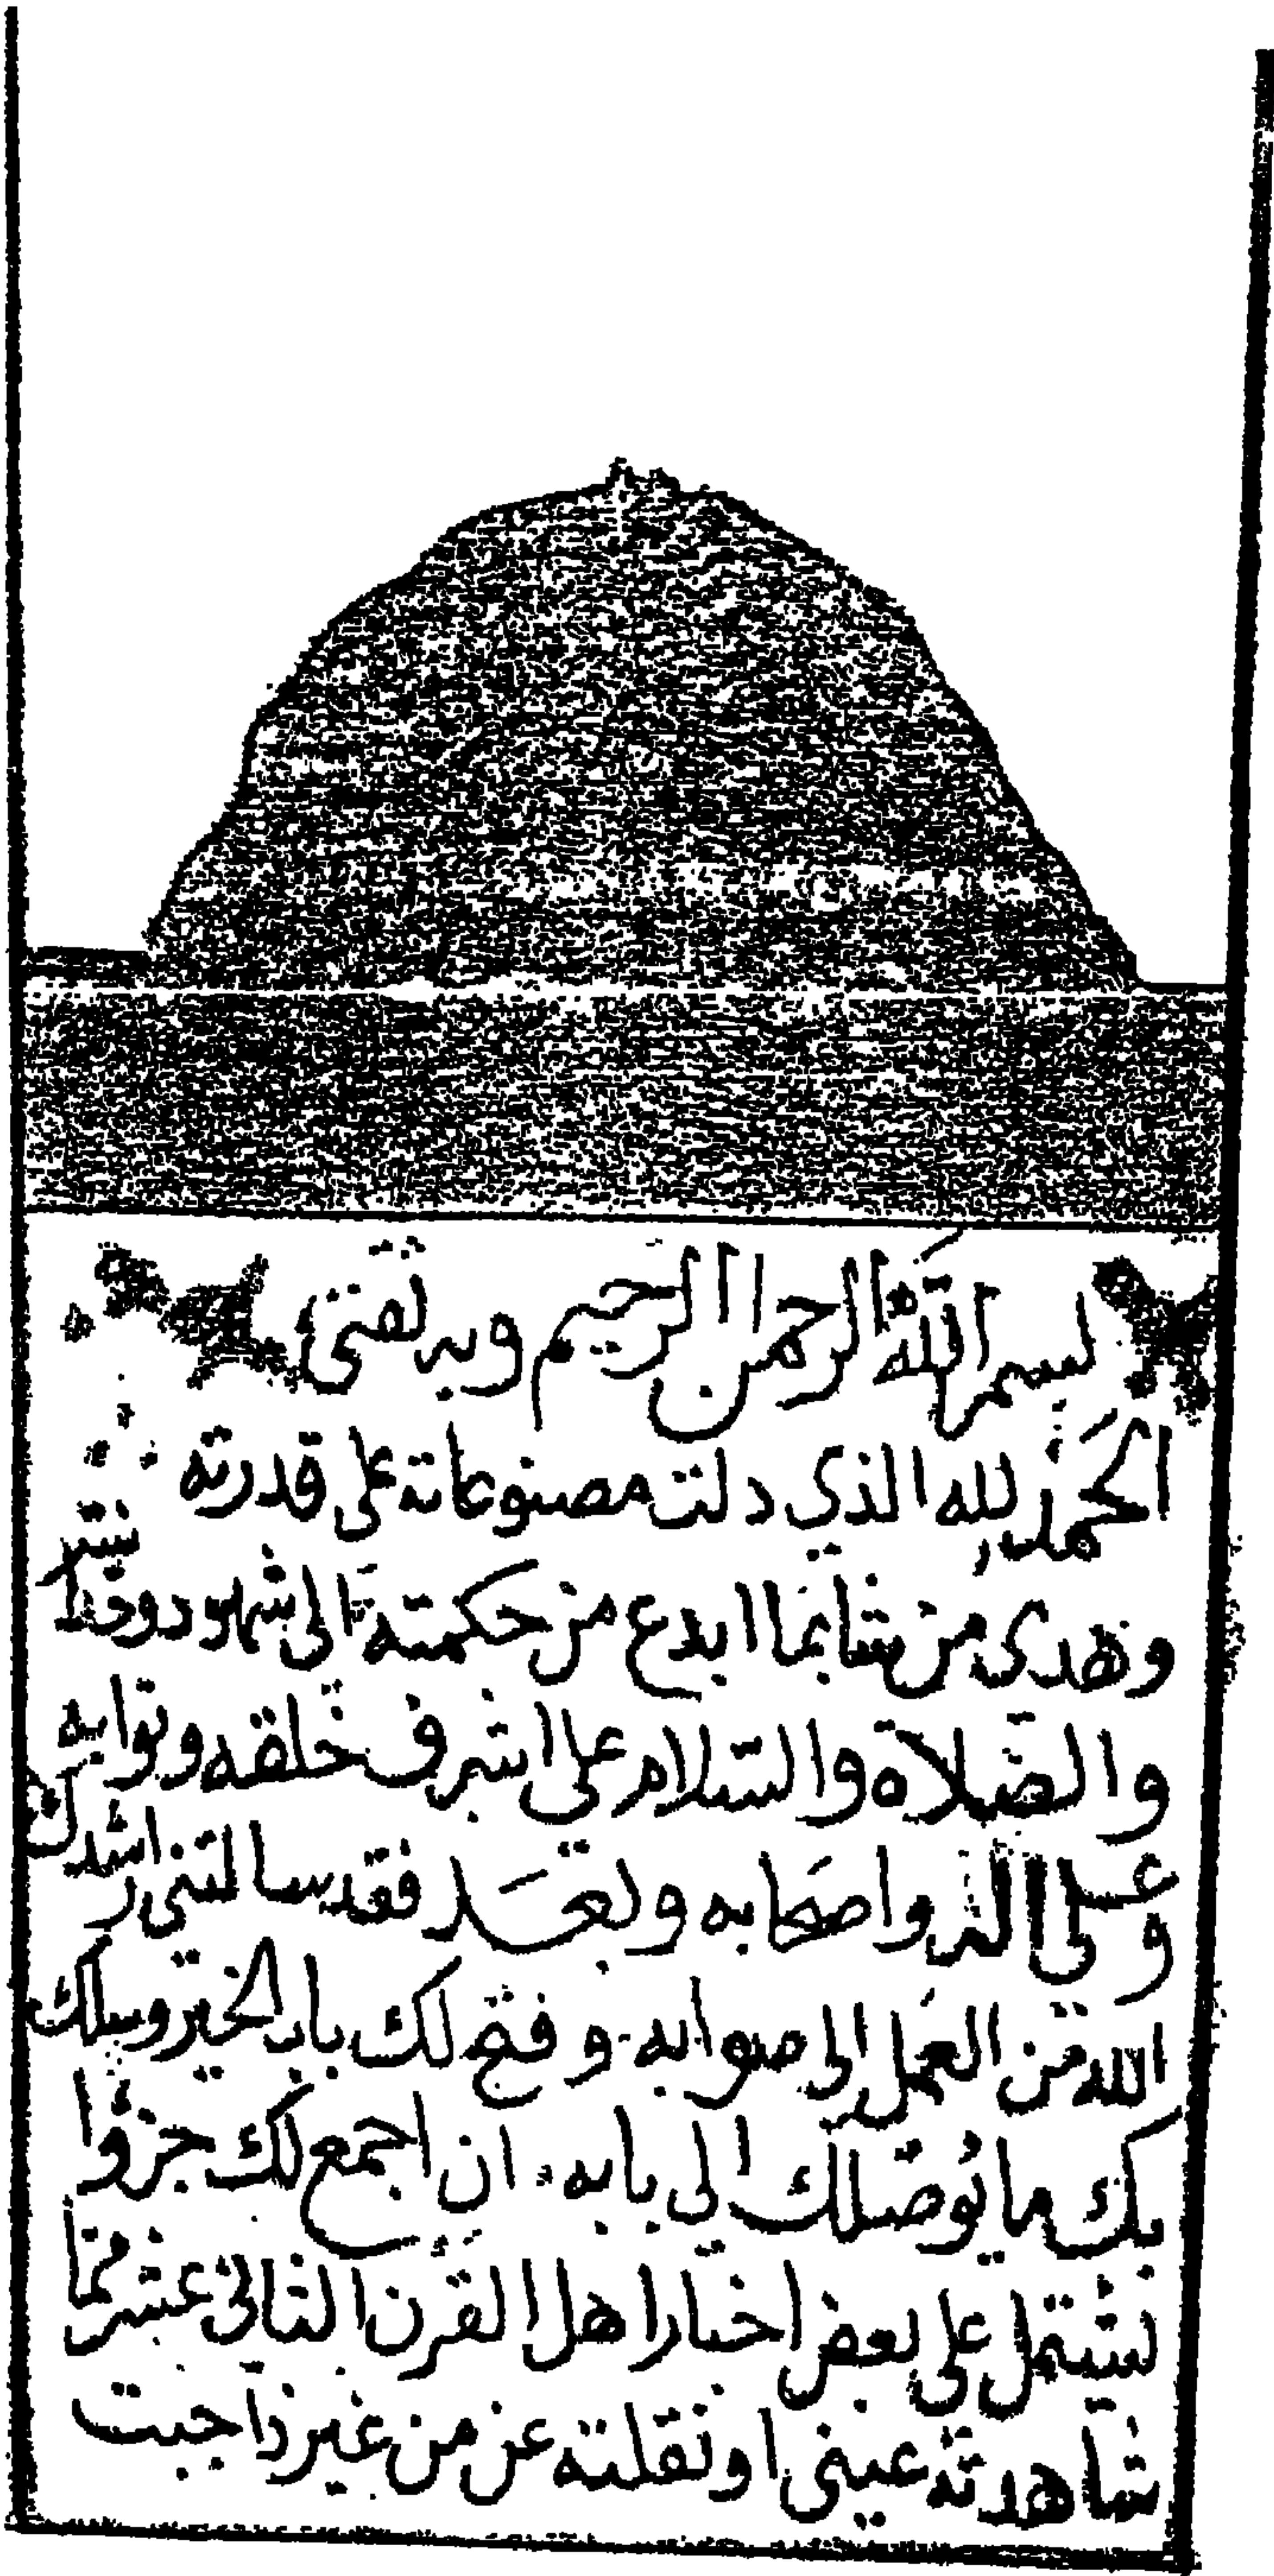 بسم الله الرحمن الرحيم وبه ثقتي
الحمد لله الذي دلت مصنوعاته على قدرته
وهدى من شا بما ابدع من حكمته الى شهود
والصلاة والسلام على اشرف خلقه ونوابه
وعلى اله واصحابه وبعد فقد سالتني ارشدك
الله من العمل الى صوابه. وفتح لك باب الخير وسلك
بك ما يوصلك الى بابه. ان اجمع لك جزؤا
يشتمل على بعض اخبار اهل القرن الثاني عشر مما
شاهدته عيني او نقلته عن من غير